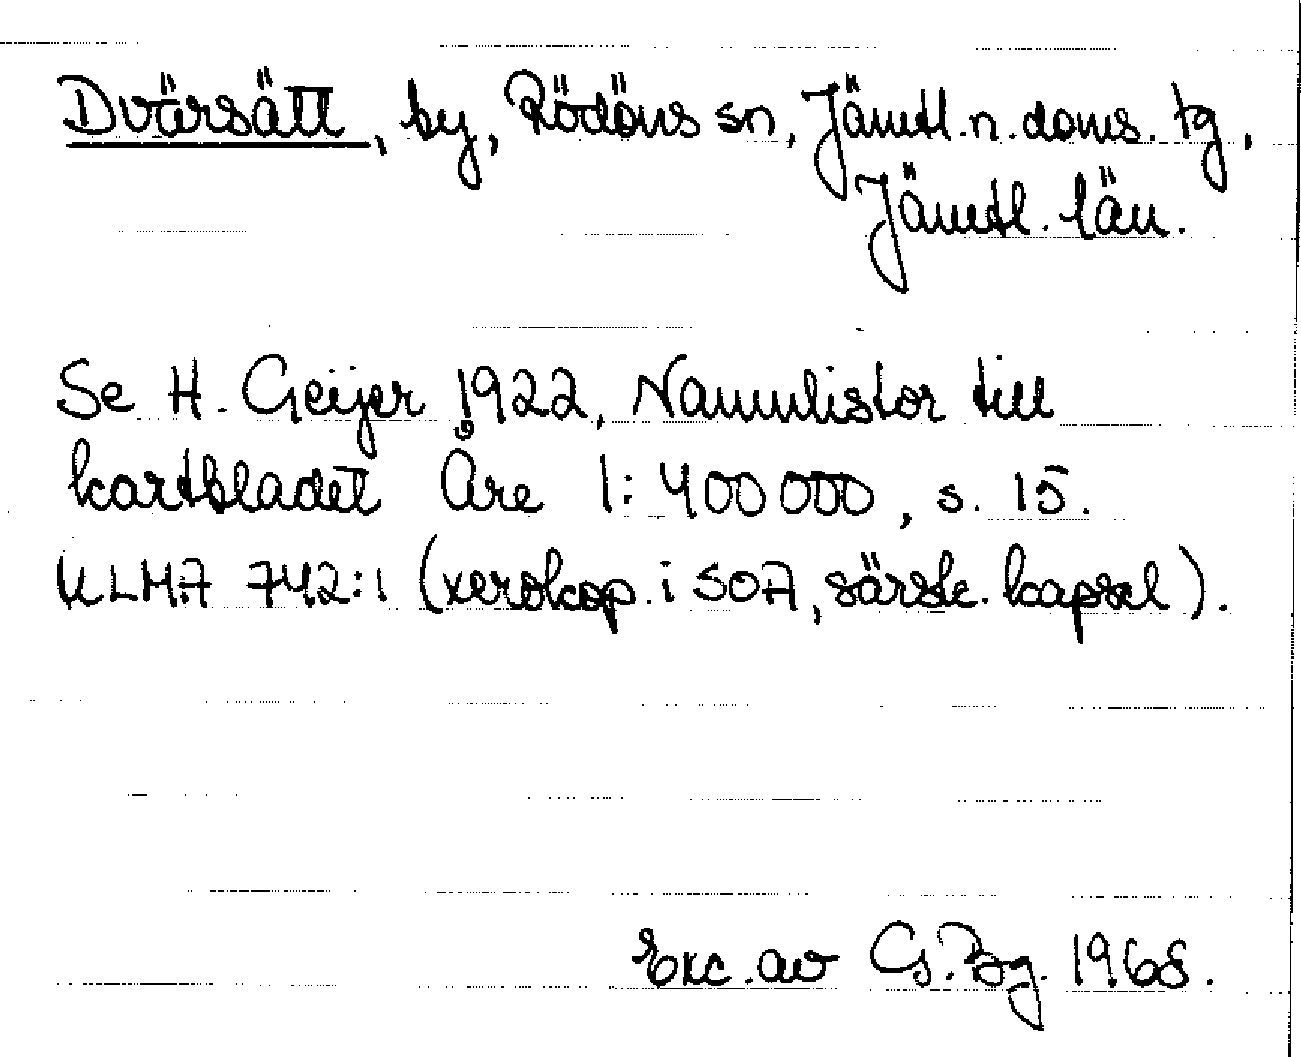 Dvärsätt, by, Rödöns sn, Jämtl. n. doms. tg,
Jämtl. län.
Se H. Geijer 1922, Namnlistor till
kartbladet Åre 1:400 000, s. 15.
ULMA 742:1 (xerokop. i SOA, särsk. kapsel).
Exc. av G. Bg. 1968.